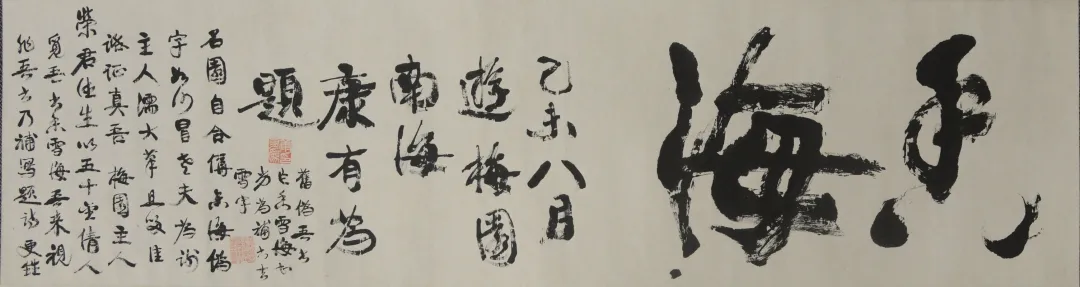 香海
己未八月
遊梅園
南海
康有為
題
舊偽吾書
香雪海
為補書去
雪字
名園自合傳香海偽
字如何冒老夫為謝
主人濡大筆且留佳
話證真吾 梅園主人
榮君德生以五十金倩人
覓吾書香雪海吾來視
非吾書乃補寫題詩更